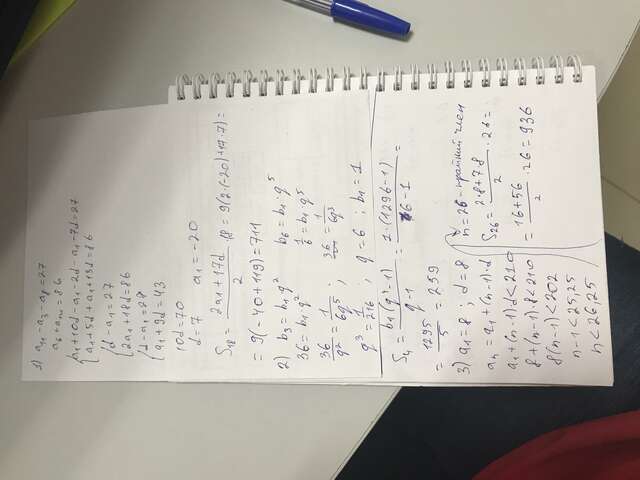 1) a₁₁ - a₃ - a₈ = 27
a₆ + a₁₄ = 86
{ a₁ + 10d - a₁ - 2d - a₁ - 7d = 27
{ a₁ + 5d + a₁ + 13d = 86
{ d - a₁ = 27
{ 2a₁ + 18d = 86
{ d - a₁ = 27
{ a₁ + 9d = 43
10d = 70
d = 7 a₁ = -20
S₁₈ = (2a₁ + 17d)/2 · 18 = 9(2·(-20) + 17·7) =
= 9(-40 + 119) = 711
2) b₃ = b₁q² b₆ = b₁·q⁵
36 = b₁q² 1/6 = b₁q⁵
36/q² = 1/6q⁵ ; 36/1 = 1/6q³
q³ = 1/216 ; q = 6 ; b₁ = 1
S₄ = b₁(q⁴-1)/(q-1) = 1·(1296-1)/(6-1) =
= 1295/5 = 259
3) a₁ = 8 ; d = 8
aₙ = a₁ + (n-1)·d
a₁ + (n-1)d < 210
8 + (n-1)·8 < 210
8(n-1) < 202
n-1 < 25,25
n < 26,25
n = 26 - крайний член
S₂₆ = (2·8 + 7·8)/2 · 26 =
= (16+56)/2 · 26 = 936